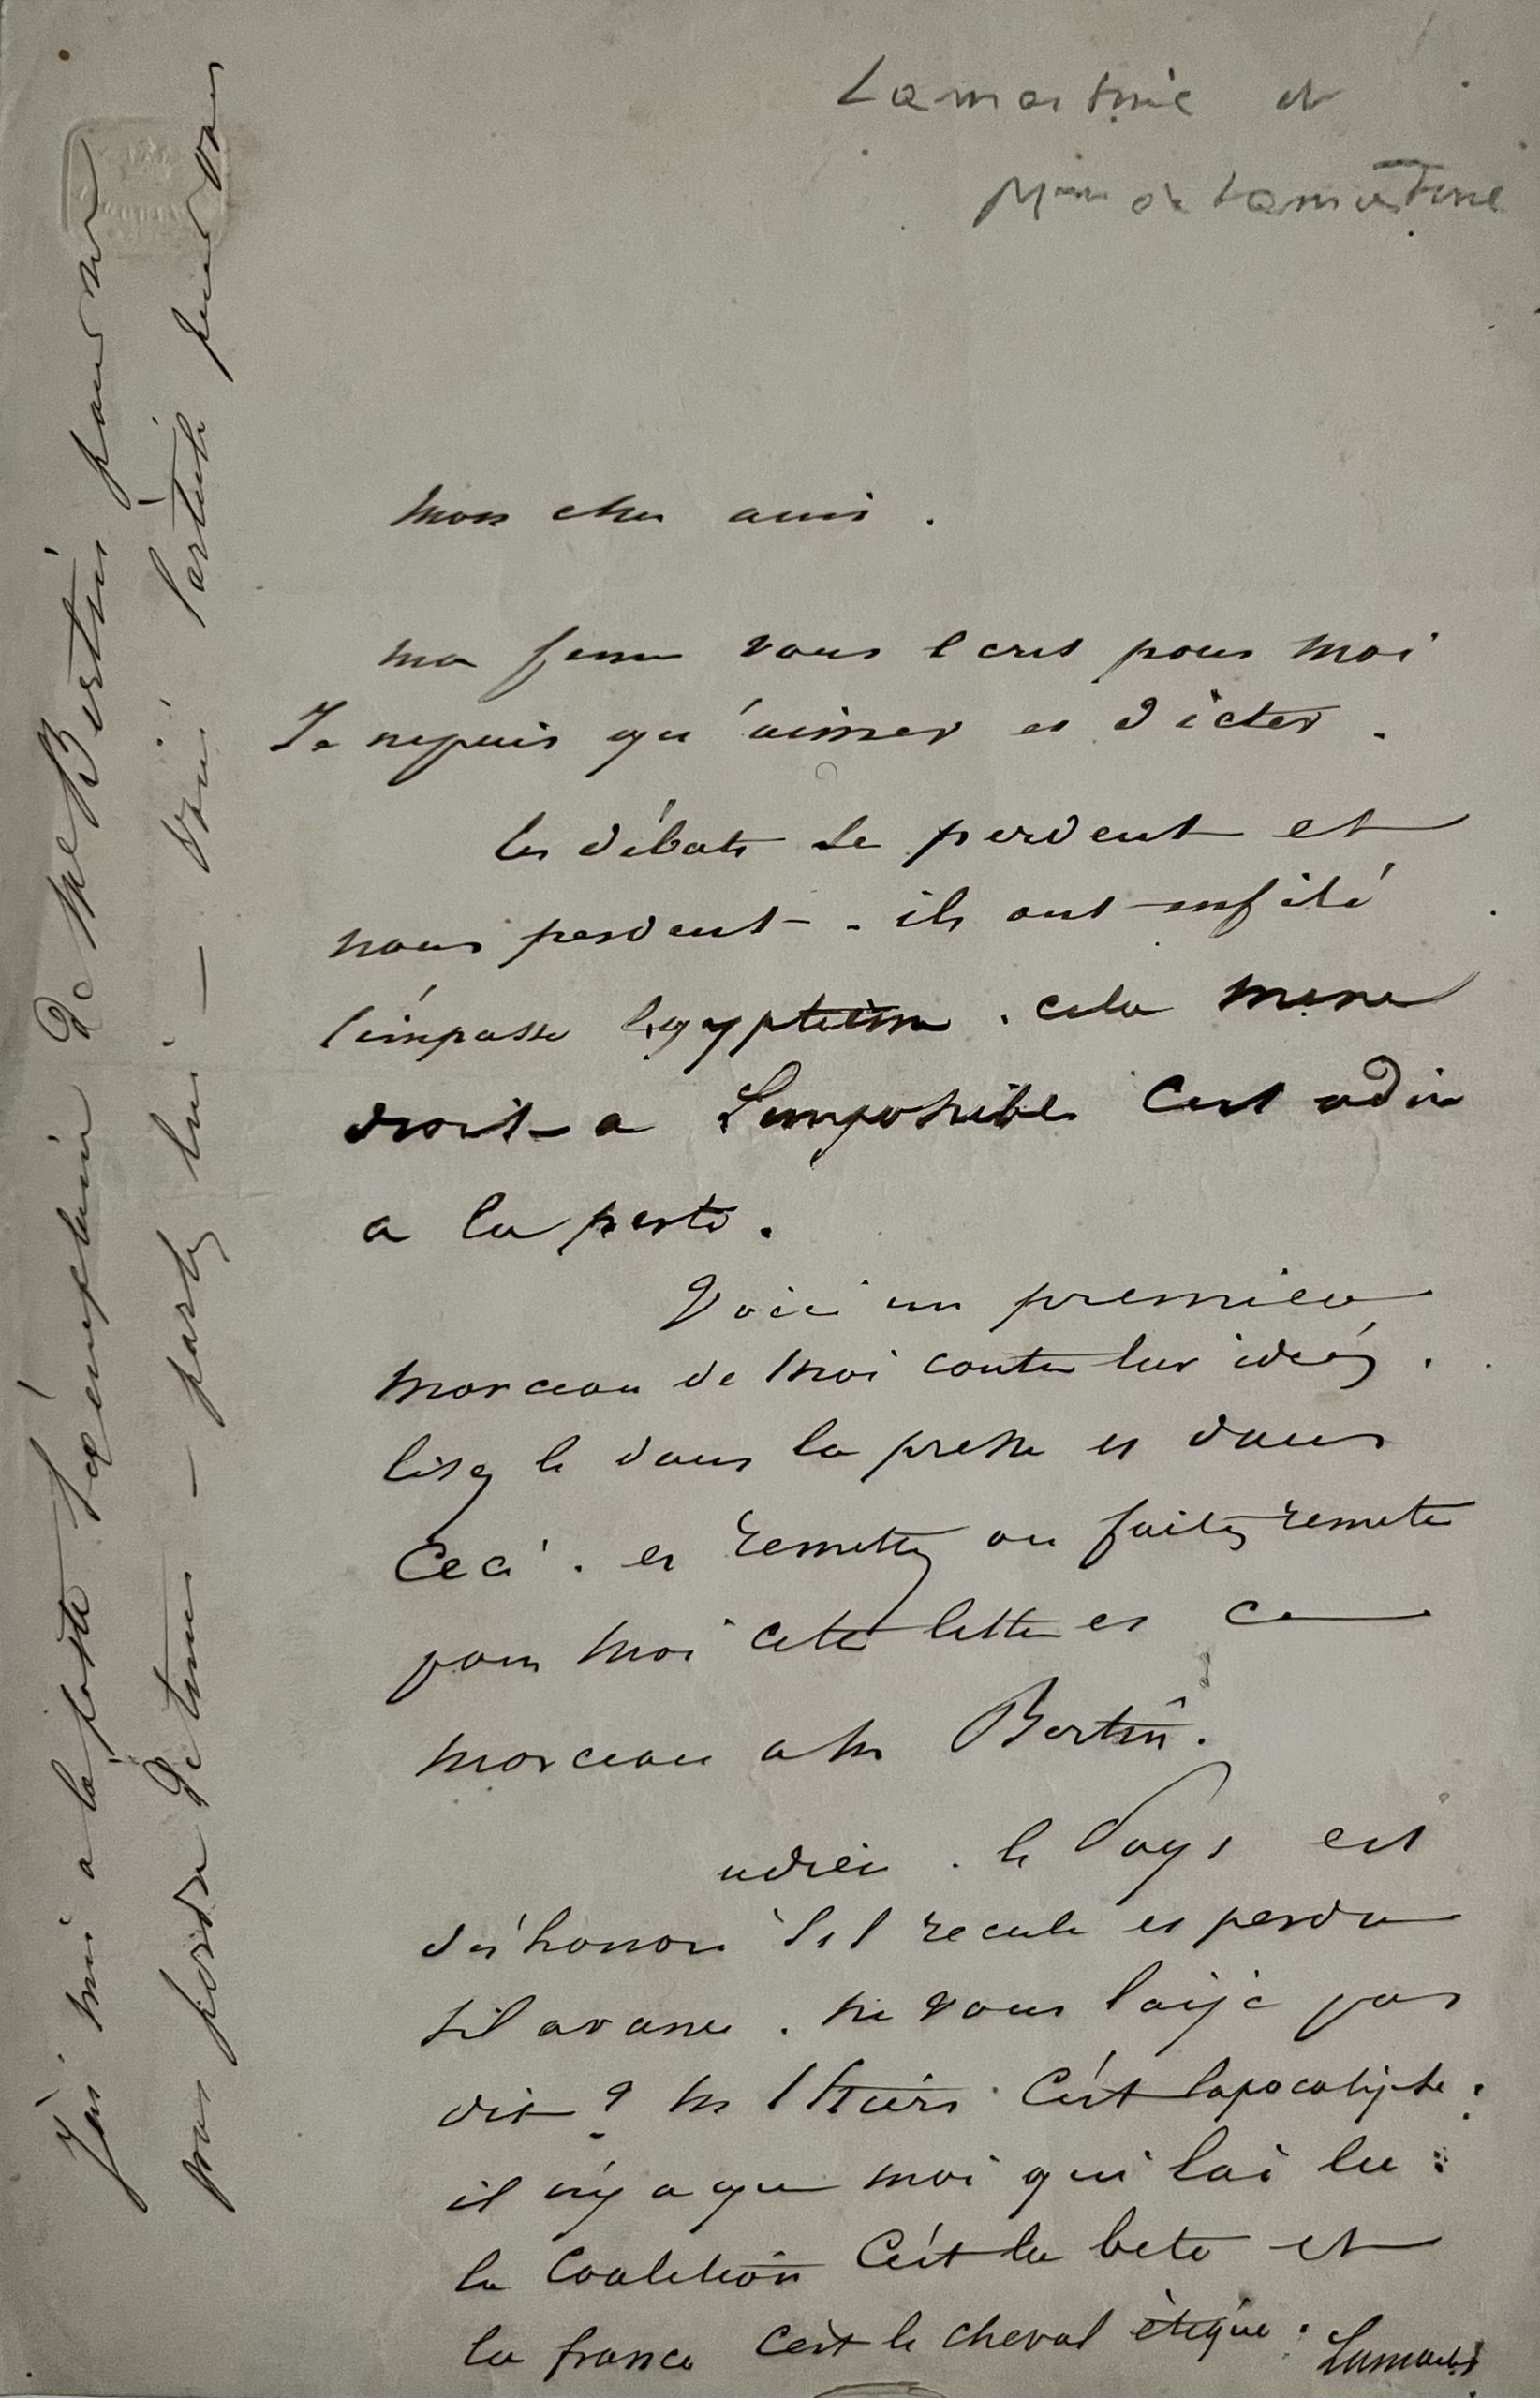 Lamartine et
Mme de Lamartine
mon cher ami.
ma femme vous ecrit pour moi
Je ne puis qu'aimer et dicter.
les débats se perdent et
nous perdent. ils ont enfilé
l'impasse Egyptienne. cela mene
droit a L'impossible C'est
a la perte.
Voici un premier
morceau de moi contre leur idées.
lisez le dans la presse et dans
Ceci. et remettez ou faites remettre
pour moi cette lettre et ce
morceau a Mr Bertin.
adieu. le Pays est
déshonoré s'il recule et perdu
s'il avance. ne vous l'ai je pas
dit? Mr Thiers C'est l'apocalipse:
il n'y a que moi qui l'ai lu:
la Coalition C'est la bete et
la france C'est le cheval étique. Lamart
J'ai mis a la poste l'exemplaire de Mr Bertin pour ne
pas perdre de tems – parlez lui. – Voici l'article pour vous